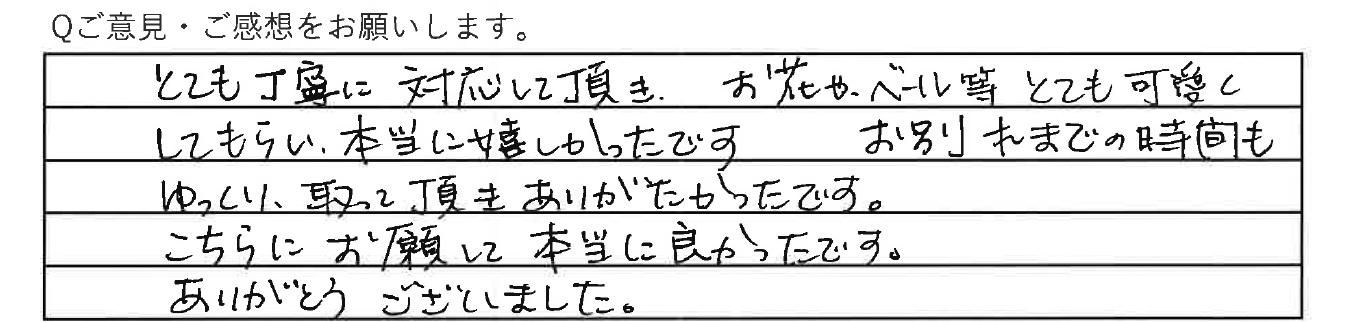 Qご意見・ご感想をお願いします。
とても丁寧に 対応して頂き、 お花や、ベール等 とても可愛く
してもらい、本当に嬉しかったです お別れまでの時間も
ゆっくり、取って頂きありがたかったです。
こちらに お願して 本当に良かったです。
ありがとう ございました。